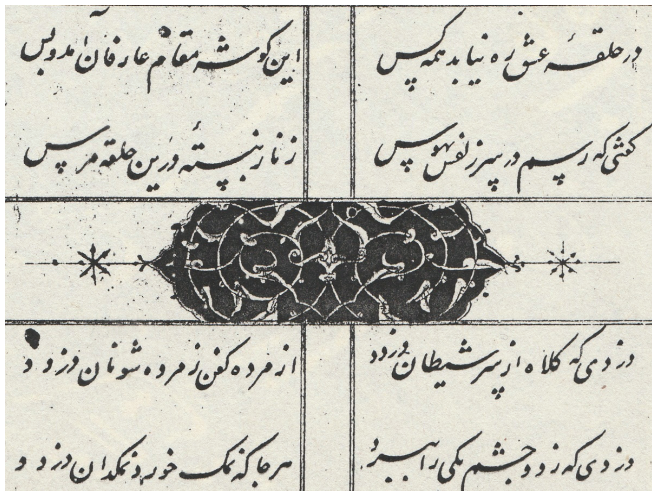 در حلقهٔ عشق ره نیابد همه کس این گوشه مقام عارفان آمد و بس
گفتی که رسم نفس بهوس زنار نبستهٔ درین حلقه مرس
دزدی که کلاه از سر شیطان دزدد از مرده کفن ز مرده شو نان دزدد
دزدی که ز دو چشم یکی را ببرد هر جا که نمک خورد نمکدان دزدد